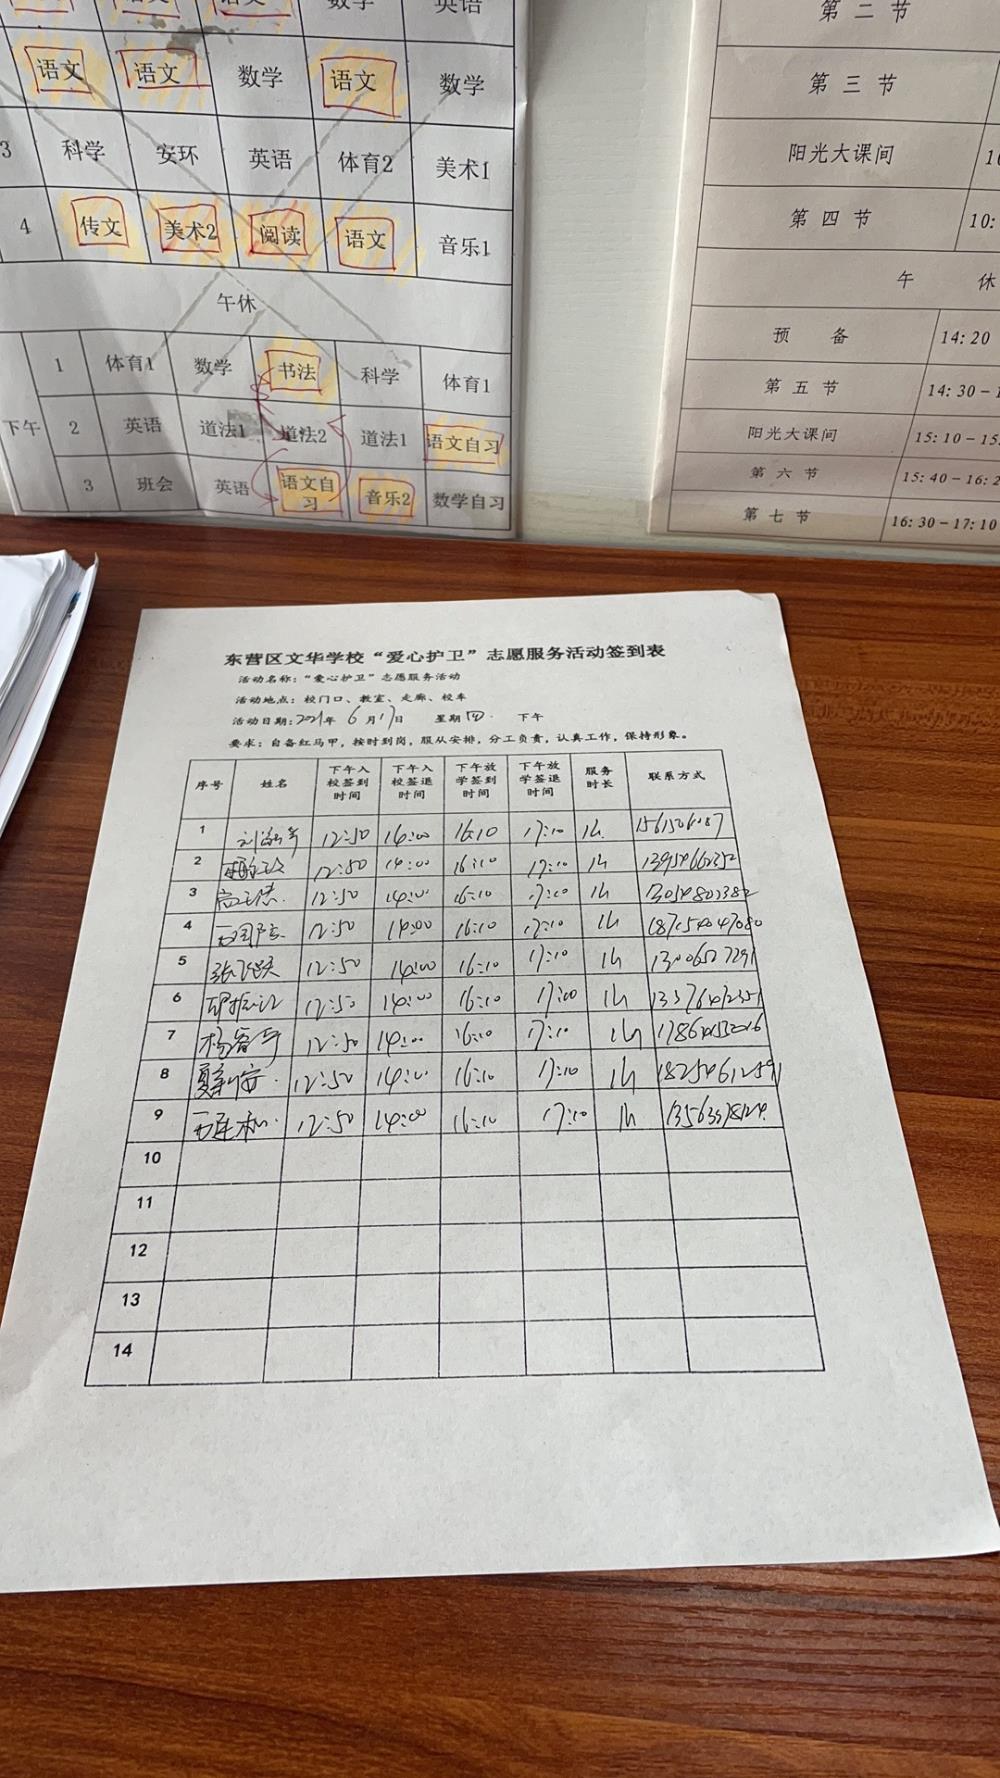 语文 语文 语文 数学 英语
语文 语文 数学 语文 数学
3 科学 安环 英语 体育2 美术1
4 传文 美术2 阅读 语文 音乐1
午休
下午
1 体育1 数学 书法 科学 体育1
2 英语 道法1 道法2 道法1 语文自习
3 班会 英语 语文自习 音乐2 数学自习
第二节
第三节
阳光大课间
第四节 10:
午休
预备 14:20
第五节 14:30-1
阳光大课间 15:10-15:
第六节 15:40-16:2
第七节 16:30-17:10
东营区文华学校“爱心护卫”志愿服务活动签到表
活动名称:“爱心护卫”志愿服务活动
活动地点:校门口、教室、走廊、校车
活动日期:2021年 6月17日 星期四 下午
要求:自备红马甲,按时到岗,服从安排,分工负责,认真工作,保持形象。
序号 姓名 下午入校签到时间 下午入校签退时间 下午放学签到时间 下午放学签退时间 服务时长 联系方式
1 12:50 14:00 16:10 17:10 1h
2 12:50 14:00 16:10 17:10 1h
3 12:50 14:00 16:10 17:10 1h
4 12:50 14:00 16:10 17:10 1h
5 12:50 14:00 16:10 17:10 1h
6 12:50 14:00 16:10 17:00 1h
7 12:50 14:00 16:10 17:10 1h
8 12:50 14:00 16:10 17:10 1h
9 12:50 14:00 16:10 17:10 1h
10
11
12
13
14